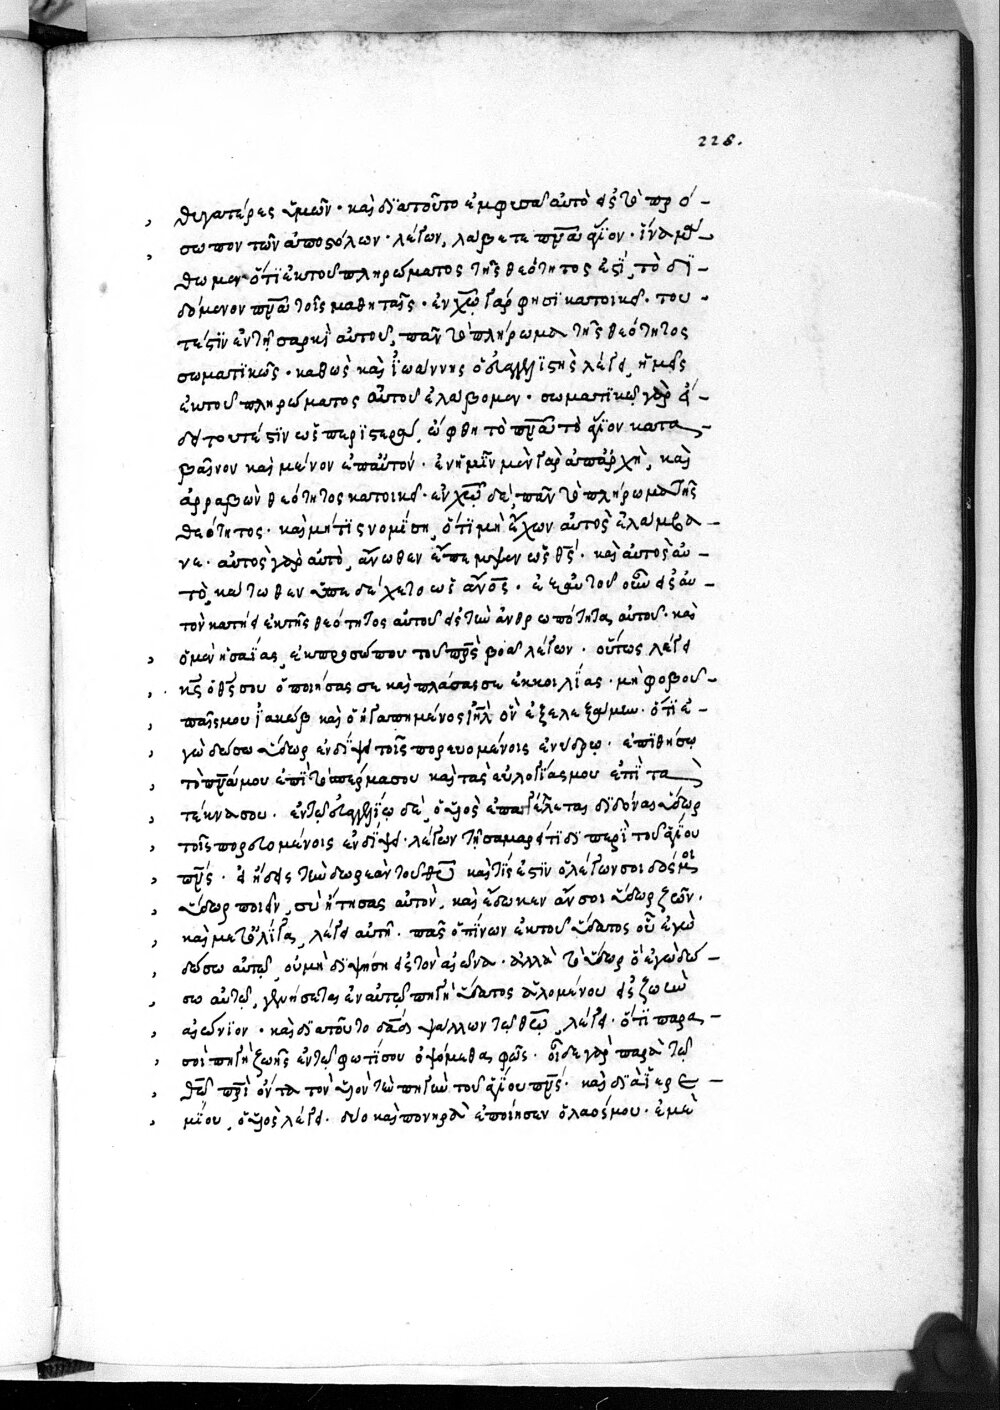 226.
θυγατέρες ὑμῶν· καὶ διατοῦτο ἐμφυσᾶ αὐτὸ εἰς τὸ πρό-
σωπον τῶν ἀποστόλων· λέγων, λάβετε πνᾶ ἅγϊον· ἵνα μά-
θωμεν ὅτι ἐκ τοῦ πληρώματος τῆς θεότητος ἐστὶ, τὸ δϊ-
δόμενον πνᾶ τοῖς μαθηταῖς· ἐν χῶ γάρ φησϊ κατοικεῖ· του-
τέστϊν ἐν τῇ σαρκὶ αὐτοῦ, πᾶν τὸ πλήρωμα τῆς θεότητος
σωματϊκῶς· καθὼς καὶ ἰωάννης ὁ εὐαγγελϊστὴς λέγει, ἡμεῖς
ἐκ τοῦ πληρώματος αὐτοῦ ἐλάβομεν· σωματϊκῶ γὰρ εἴ-
δει τουτέστϊν ὡς περϊστερὰ, ὤφθη τὸ πνᾶ τὸ ἅγϊον κατα-
βαῖνον καὶ μένον ἐπ αὐτόν· ἐν ἡμῖν μὲν γὰρ ἀπαρχὴ, καὶ
ἀρραβὼν θεότητος κατοικεῖ· ἐν χῶ δὲ, πᾶν τὸ πλήρωμα τῆς
θεότητος· καὶ μή τις νομίση, ὅτι μὴ ἔχων αὐτὸς ἐλάμβα-
νε· αὐτὸς γὰρ αὐτὸ, ἄνωθεν ἔπεμψεν ὡς θς· καὶ αὐτὸς αὐ-
τὸ, κάτωθεν ὑπεδέχετο ὡς ἄνος· ἐξ αὐτοῦ οὖν εἰς αὐ-
τὸν κατήει ἐκ τῆς θεότητος αὐτοῦ εἰς τὴν ἀνθρωπότητα αὐτοῦ· καὶ
ὁ μὲν ἡσαΐας, ἐκ προσώπου τοῦ πρς βοᾶ λέγων· οὕτως λέγει
κς ὁ θς σου ὁ ποιήσας σε καὶ πλάσας σε ἐκ κοιλίας· μὴ φοβοῦ
παῖς μου ἰακὼβ καὶ ὁ ἠγαπημένος ἰηλ ὃν ἐξελεξάμην· ὅτι ἐ-
γὼ δώσω ὕδωρ ἐν δίψει τοῖς πορευομένοις ἐν ἀνύδρω· ἐπιθήσω
τὸ πνᾶ μου ἐπὶ τὸ σπέρμα σου καὶ τὰς εὐλογίας μου ἐπὶ τὰ
τέκνα σου· ἐν τῶ εὐαγγελίω δὲ, ὁ υἱὸς ἐπαγγέλεται διδόναι ὕδωρ
τοῖς πορευομένοις ἐν δίψει· λέγων τῇ σαμαρείτιδι περὶ τοῦ ἁγίου
πνς· εἰ ἤδεις τὴν δωρεὰν τοῦ θυ καὶ τίς ἐστὶν ὁ λέγων σοι δός μοι
ὕδωρ πιεῖν, σὺ ἤτησας αὐτὸν, καὶ ἔδωκεν ἄν σοι ὕδωρ ζῶν·
καὶ μετ ὀλίγα, λέγει αὐτῆ· πᾶς ὁ πίνων ἐκ τοῦ ὕδατος οὗ ἐγὼ
δώσω αὐτῶ, οὐ μὴ διψήση εἰς τὸν αἰῶνα· ἀλλὰ τὸ ὕδωρ ὃ ἐγὼ δώ-
σω αὐτῶ, γενήσεται ἐν αὐτῶ πηγὴ ὕδατος ἁλομένου εἰς ζωὴν
αἰώνϊον· καὶ διατοῦτο δαδ ψάλλων τῶ θῶ, λέγει· ὅτι παρα
σοὶ πηγὴ ζωῆς ἐν τῶ φωτί σου ὀψόμεθα φῶς· οἶδε γὰρ παρὰ τῶ
θῶ πρὶ ὄντα τὸν υἱὸν τὴν πηγὴν τοῦ ἁγίου πνς· καὶ διὰ ἱερε-
μίου, ὁ υἱὸς λέγει· δύο καὶ πονηρὰ ἐποίησεν ὁ λαός μου· ἐμὲ